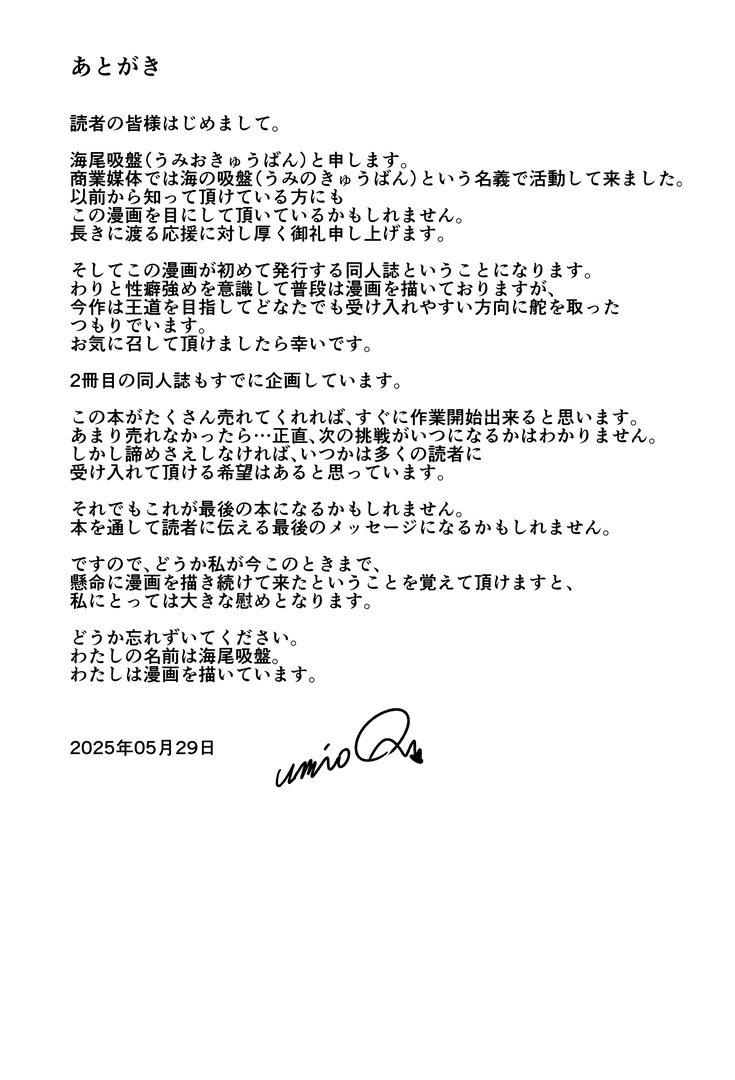 あとがき
読者の皆様はじめまして。
海尾吸盤(うみおきゅうばん)と申します。
商業媒体では海の吸盤(うみのきゅうばん)という名義で活動して来ました。
以前から知って頂けている方にも
この漫画を目にして頂いているかもしれません。
長きに渡る応援に対し厚く御礼申し上げます。
そしてこの漫画が初めて発行する同人誌ということになります。
わりと性癖強めを意識して普段は漫画を描いておりますが、
今作は王道を目指してどなたでも受け入れやすい方向に舵を取った
つもりでいます。
お気に召して頂けましたら幸いです。
2冊目の同人誌もすでに企画しています。
この本がたくさん売れてくれれば、すぐに作業開始出来ると思います。
あまり売れなかったら…正直、次の挑戦がいつになるかはわかりません。
しかし諦めさえしなければ、いつかは多くの読者に
受け入れて頂ける希望はあると思っています。
それでもこれが最後の本になるかもしれません。
本を通して読者に伝える最後のメッセージになるかもしれません。
ですので、どうか私が今このときまで、
懸命に漫画を描き続けて来たということを覚えて頂けますと、
私にとっては大きな慰めとなります。
どうか忘れずいてください。
わたしの名前は海尾吸盤。
わたしは漫画を描いています。
2025年05月29日
umio Q